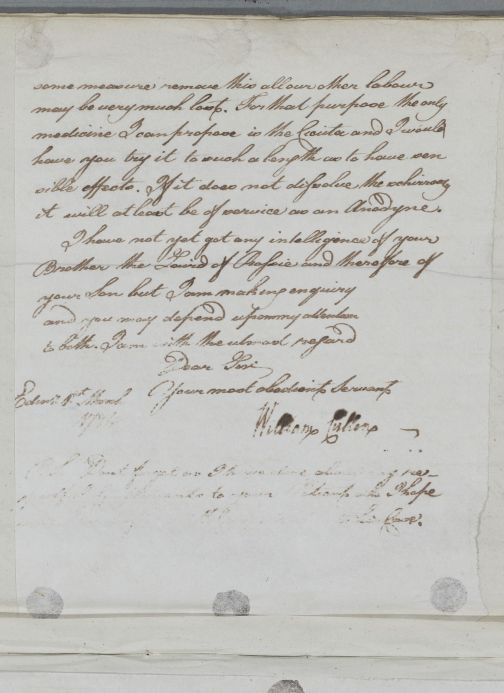 some measure remove this all our other labour
may be very much lost. For that purpose the only
medicine I can propose is the Cicuta and I would
have you try it to such a length as to have sen
sible effects. If it does not dissolve the schirrosity
it will at least be of service as an Anodyne.
I have not yet got any intelligence of your
Brother the Laird of and therefore of
your Son but I am making enquiry
and you may depend upon my attention
to both. I am with the utmost regard
Dear Sir
Your most obedient Servant
Edinr.
William Cullen
re-
to your who I hope